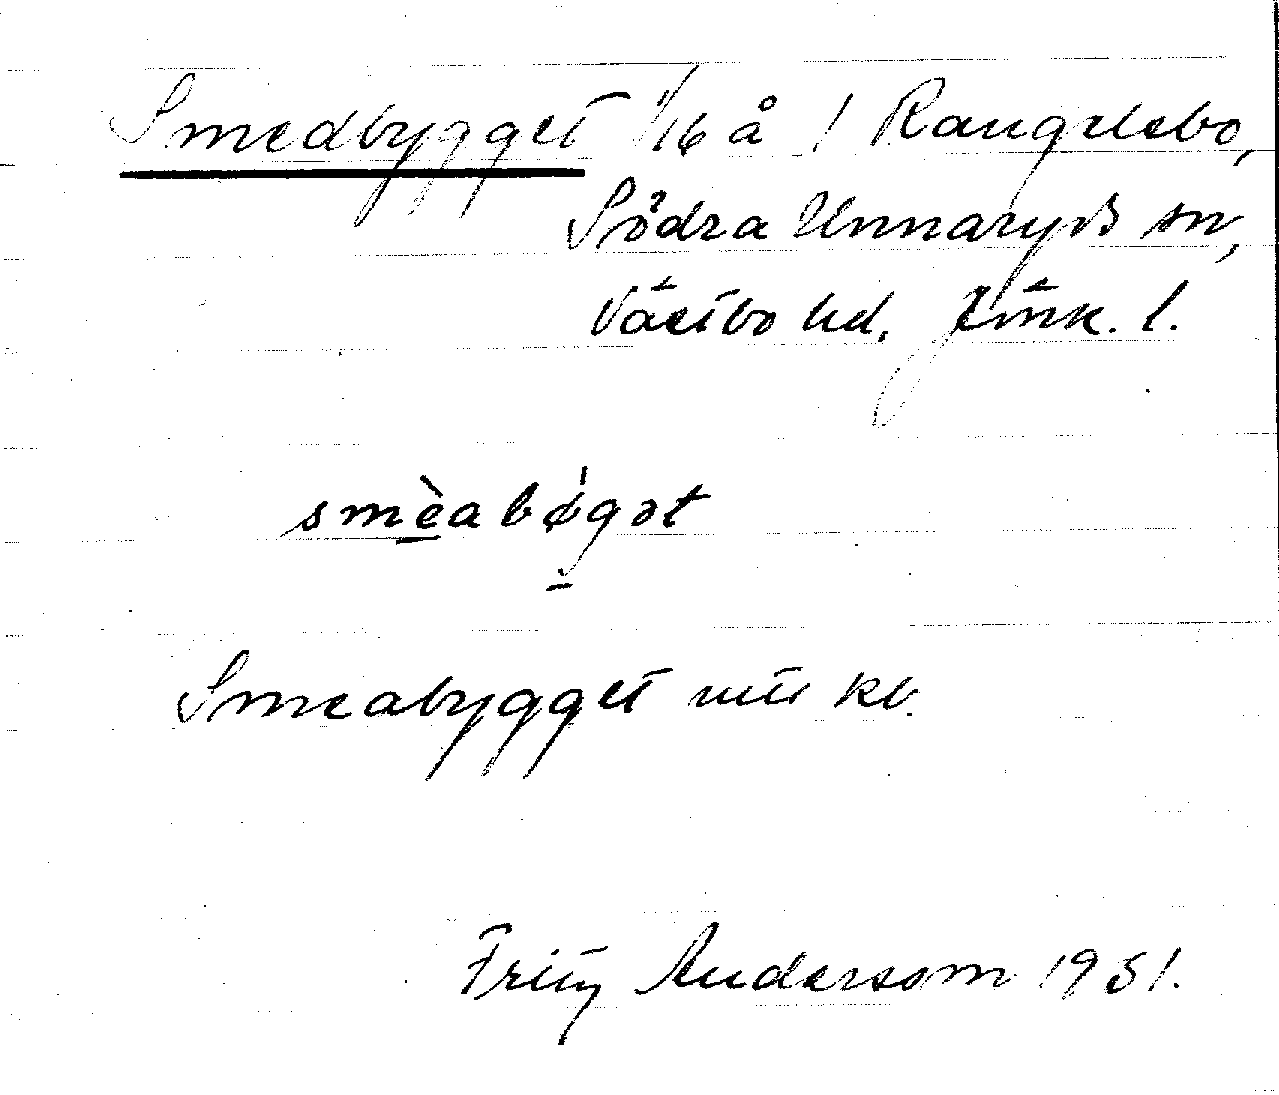 Smedbygget 1/16 å 1 Rangelebo,
Södra Unnaryds sn,
Västbo hd, Jönk. l.
smèabø̍gət
Smeabygget kb.
Fritz Andersson 1951.